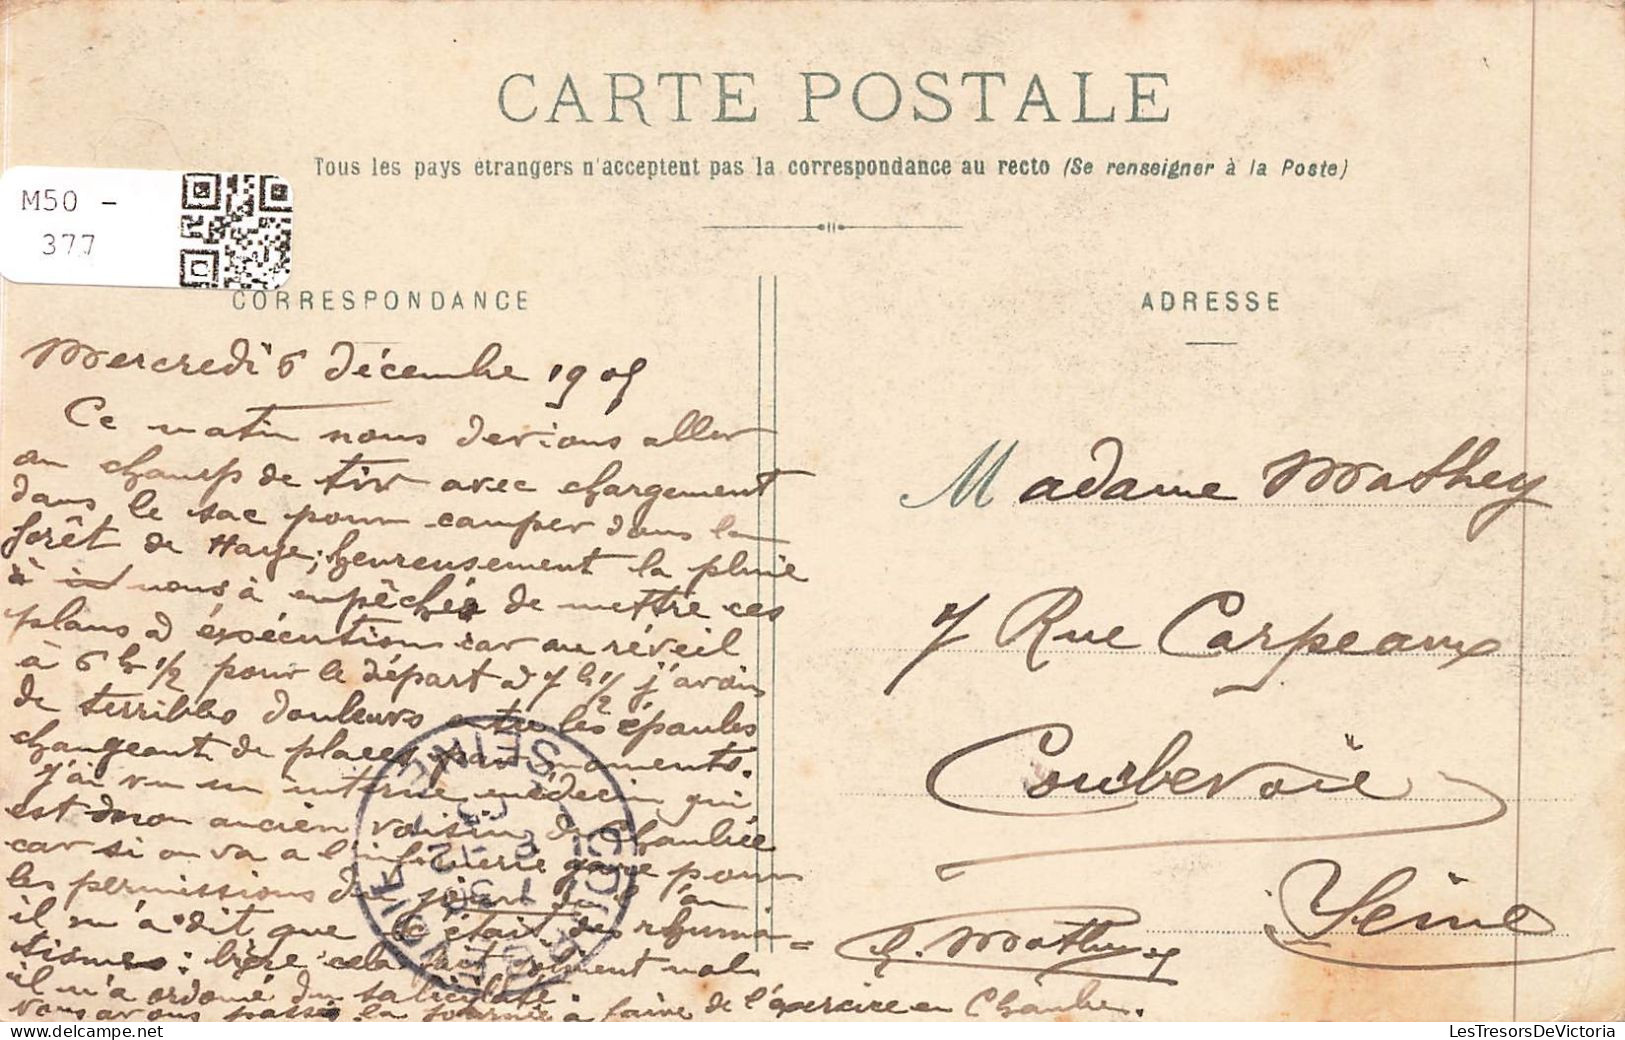 CARTE POSTALE
Tous les pays étrangers n'acceptent pas la correspondance au recto (Se renseigner à la Poste)
M50 -
377
CORRESPONDANCE
Mercredi 6 décembre 1905
Ce matin nous devions aller
au champ de tir avec chargement
dans le sac pour camper dans la
forêt de Haye; heureusement la pluie
nous à empêchés de mettre ces
plans à éxécution car au réveil
à 6 h 1/2 pour le départ à 7 h 1/2 j'avais
de terribles douleurs entre les épaules
changeant de places par moments.
J'ai vu un interne médecin qui
est mon ancien voisin de Chambrée
car si on va a l'infirmerie gare pour
les permissions du jour de l'an
il m'a dit que c'était des rhuma=
tismes: bigre cela fait joliment mal
il m'a ordonné du salicylate.
nous avons passé la journée à faire de l'exercice en Chambre.
ADRESSE
Madame Mathey
7 Rue Carpeaux
Courbevoie
Seine
E. Mathey
COURBEVOIE
SEINE
LesTresorsDeVictoria.com